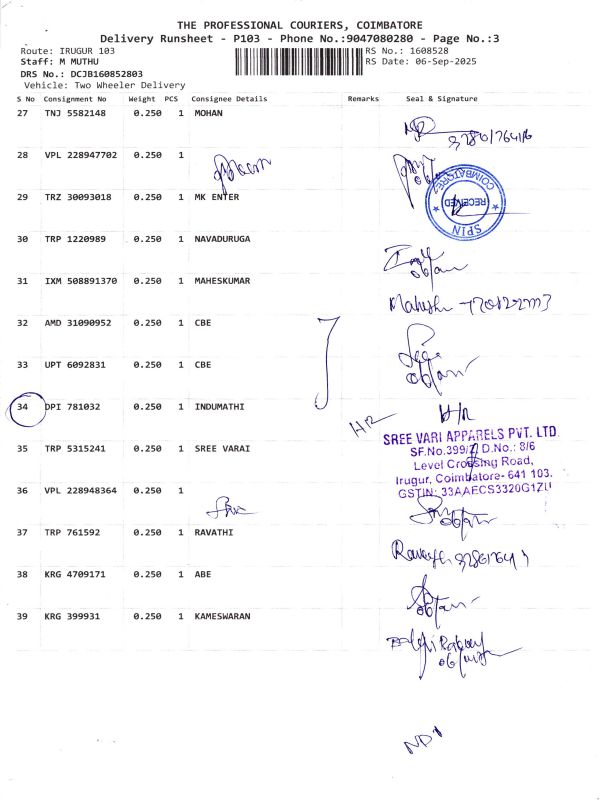 THE PROFESSIONAL COURIERS, COIMBATORE
Delivery Runsheet - P103 - Phone No.:9047080280 - Page No.:3
Route: IRUGUR 103 RS No.: 1608528
Staff: M MUTHU RS Date: 06-Sep-2025
DRS No.: DCJB160852803
Vehicle: Two Wheeler Delivery
S No Consignment No Weight PCS Consignee Details Remarks Seal & Signature
27 TNJ 5582148 0.250 1 MOHAN
28 VPL 228947702 0.250 1
29 TRZ 30093018 0.250 1 MK ENTER
COIMBATORE
RECEIVED
SPIN
30 TRP 1220989 0.250 1 NAVADURUGA
31 IXM 508891370 0.250 1 MAHESKUMAR
Mahesh
32 AMD 31090952 0.250 1 CBE
33 UPT 6092831 0.250 1 CBE
34 DPI 781032 0.250 1 INDUMATHI
H/R H/R
SREE VARI APPARELS PVT. LTD
SF.No.399/ D.No.: 8/6
Level Crossing Road,
Irugur, Coimbatore- 641 103.
GSTIN: 33AAECS3320G1ZU
35 TRP 5315241 0.250 1 SREE VARAI
36 VPL 228948364 0.250 1
37 TRP 761592 0.250 1 RAVATHI
38 KRG 4709171 0.250 1 ABE
39 KRG 399931 0.250 1 KAMESWARAN